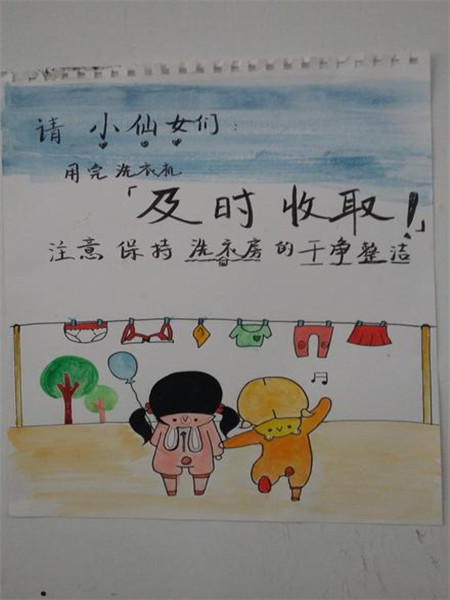 请小仙女们：
用完洗衣机
「及时收取！」
注意保持洗衣房的干净整洁